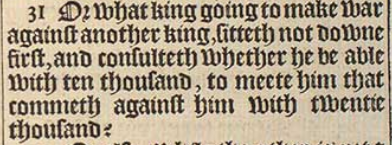 31 Or what king going to make war
against another king, sitteth not downe
first, and consulteth whether he be able
with ten thousand, to meete him that
commeth against him with twentie
thousand?